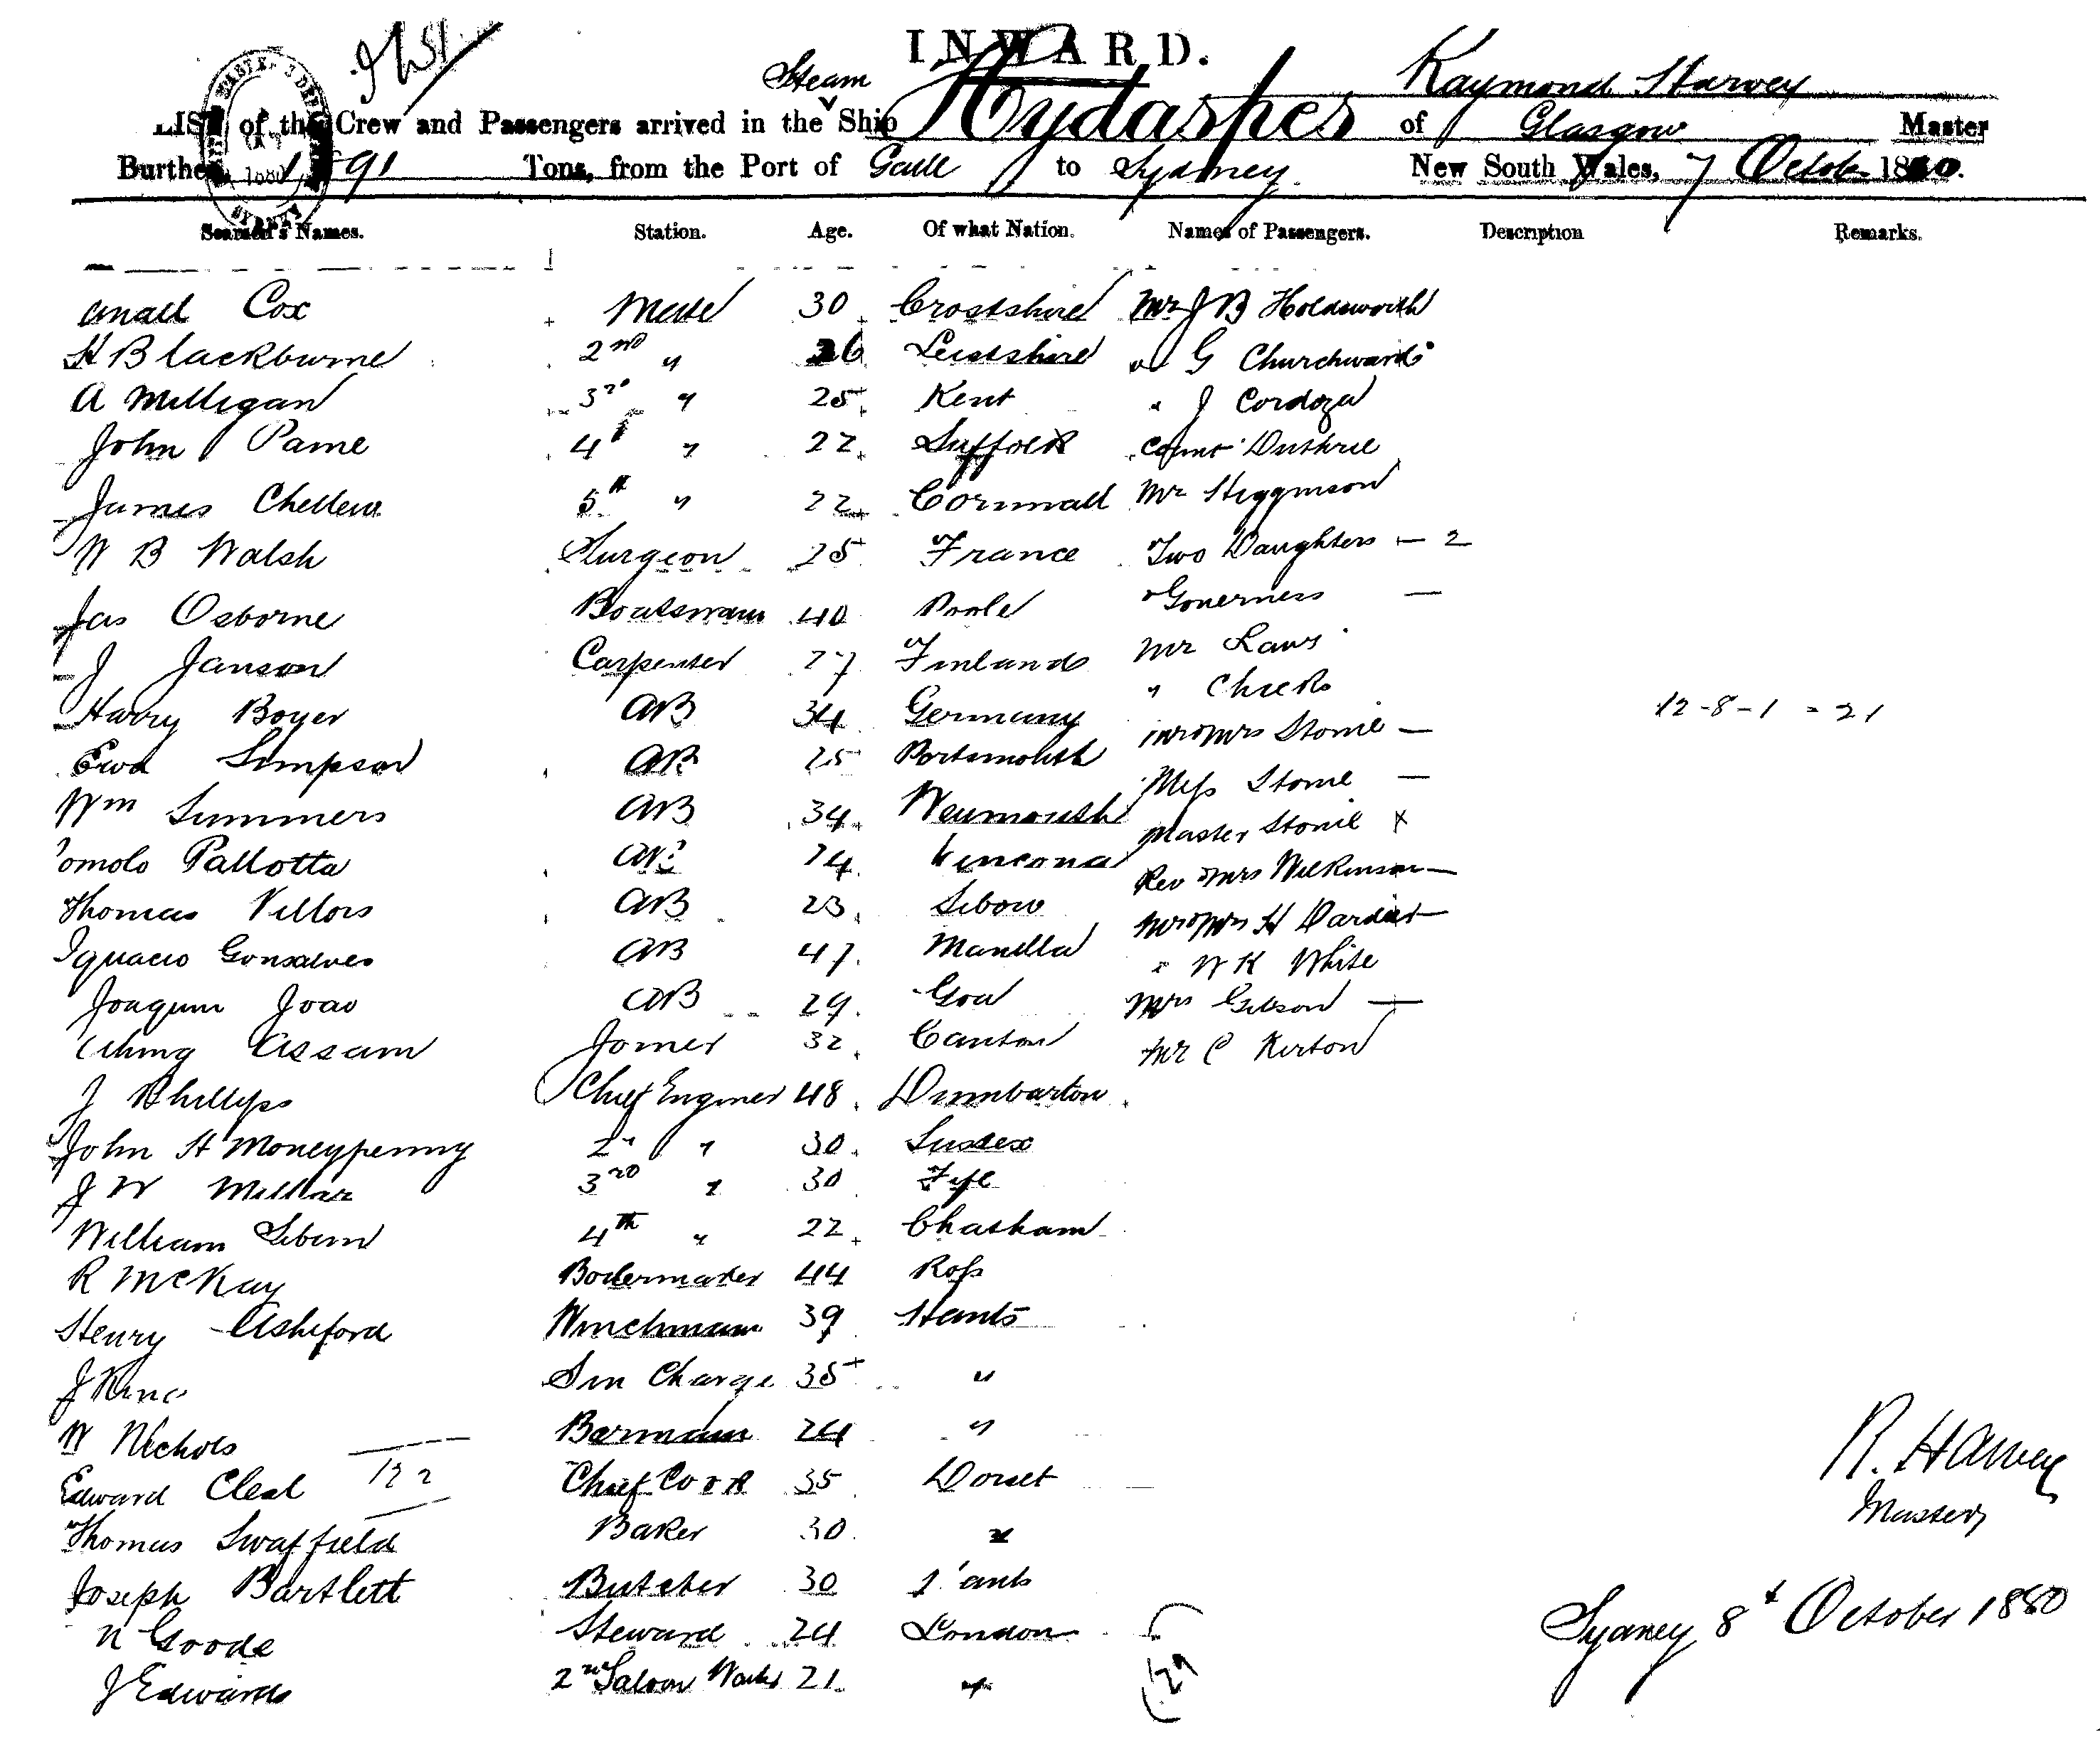 INWARD.
Steam Raymond Harvey
LIST of the Crew and Passengers arrived in the Ship Hydaspes of Glasgow Master
Burthen 1891 Tons, from the Port of Galle to Sydney New South Wales, 7 October 1880.
Seamen's Names. Station. Age. Of what Nation. Names of Passengers. Description Remarks.
Cox Mate 30 Mr J B Holdsworth
H Blackburne 2nd " 26 " G Churchward
A Milligan 3rd " 25 Kent " J Cordoza
John Paine 4th " 22 Suffolk Count Duthrie
James Chellew 5th " 22 Cornwall Mr Higginson
W B Walsh Surgeon 25 France Two Daughters — 2
Jas Osborne Boatswain 40 Poole " Governess —
J Janson Carpenter 27 Finland Mr Laws
Harry Boyer AB 34 Germany " Cheeks 12-8-1 = 21
Ewd Simpson AB 25 Portsmouth Mr & Mrs Stonie —
Wm Summers AB 34 Weymouth Miss Stonie —
Pallotta AB 24 Master Stonie x
Thomas Villors AB 23 Rev & Mrs Wilkinson —
Ignacio Gonsalves AB 47 Manilla Mr & Mrs H —
Joaquim Joao AB 29 Goa " W K White
Assam Joiner 32 Canton Mrs Gibson —
J Phillips Chief Engineer 48 Dumbarton Mr C Kirton
John H Moneypenny 2nd " 30 Sussex
J W Millar 3rd " 30 Fife
William 4th " 22 Chatham
R McKay Boilermaker 44 Ross
Henry Ashford Winchman 39 Hants
J King Sin Charge 35 "
W Nichols Barman 24 "
Edward Cleal Chief Cook 35 Dorset
Thomas Swaffield Baker 30 "
Joseph Bartlett Butcher 30 Hants
N Goode Steward 24 London
J Edwards 2nd Saloon 21 "
29
R. Harvey
Master
Sydney 8t October 1880